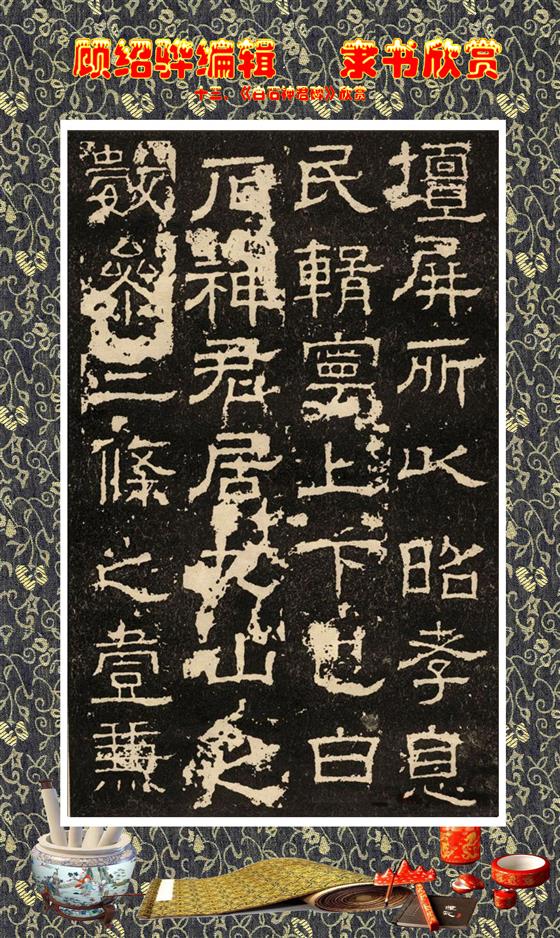 顾绍骅编辑 隶书欣赏
十三、《白石神君碑》欣赏
壇屏所以昭孝息
民輯寧上下也白
石神君居九山之
數參三條之壹兼